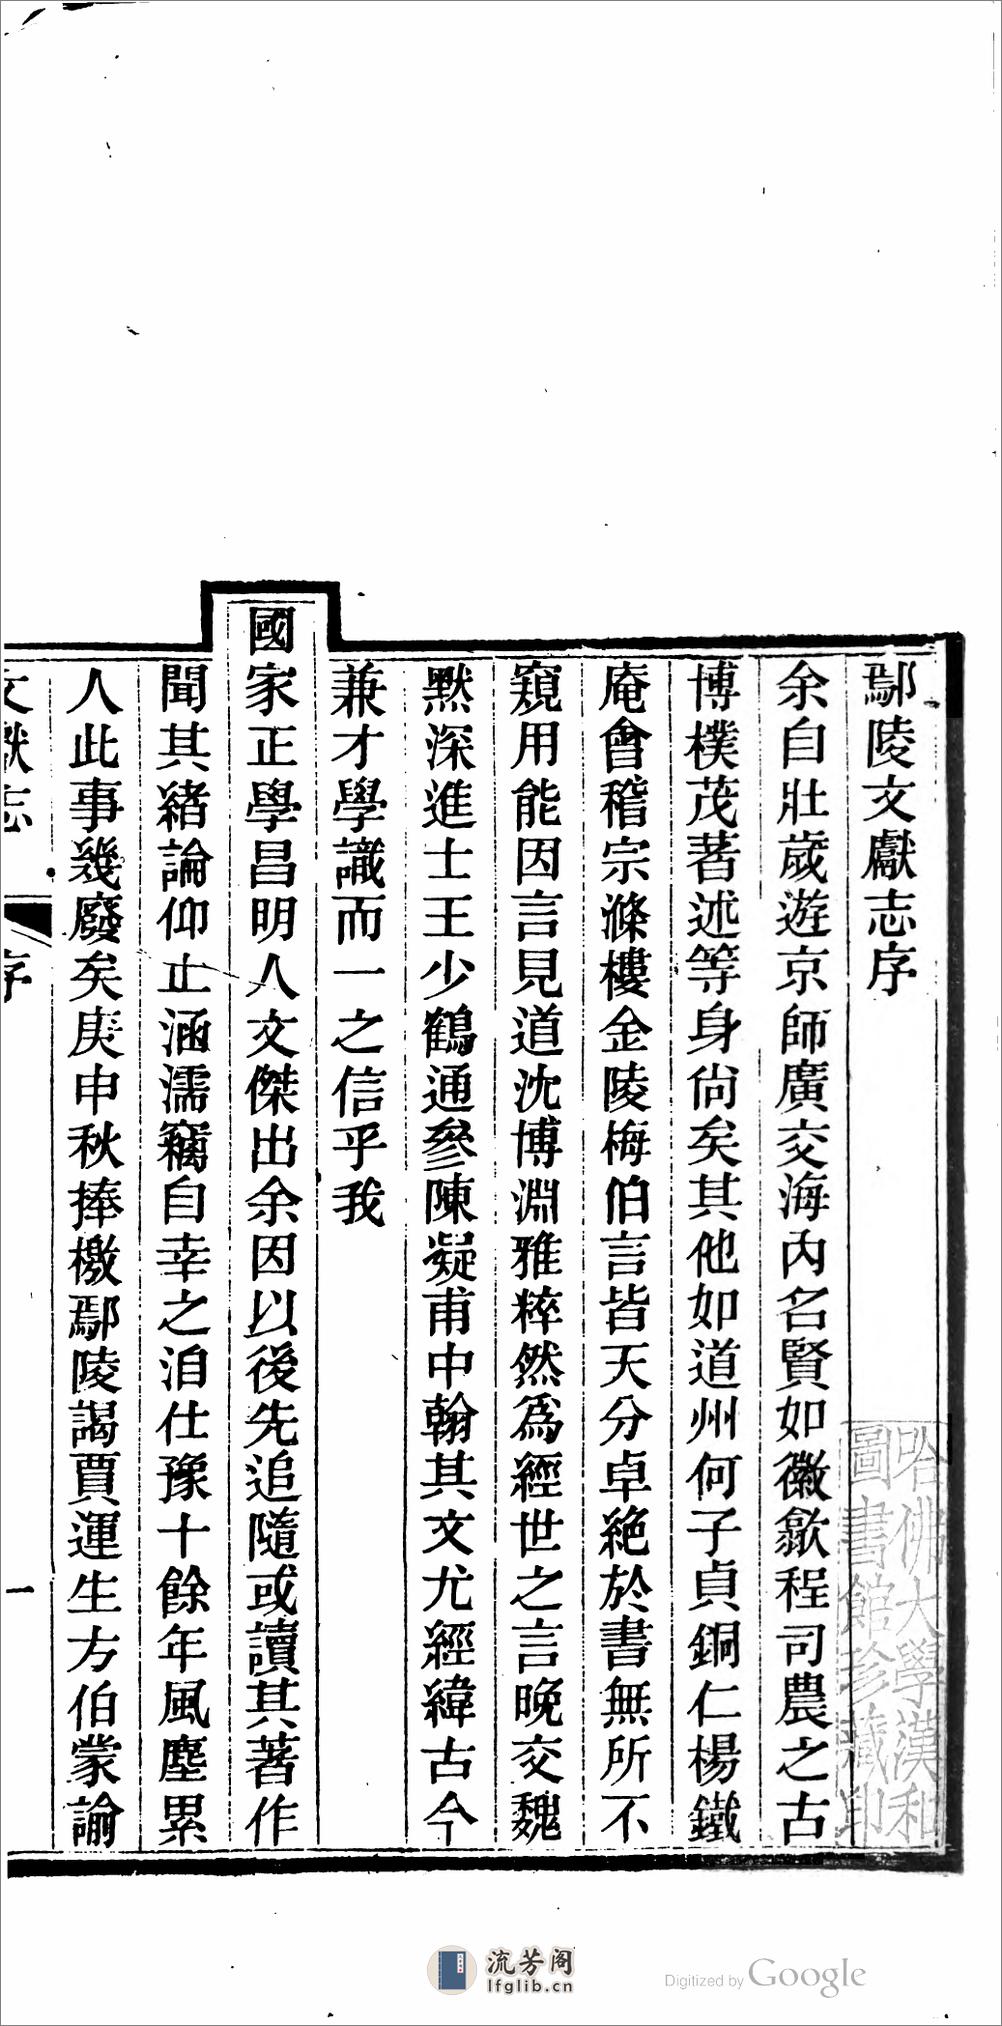 鄢陵文獻志序
余自壯歲遊京師廣交海內名賢如徽歙程司農之古
博樸茂著述等身尙矣其他如道州何子貞銅仁楊鐵
庵會稽宗滌樓金陵梅伯言皆天分卓絶於書無所不
窺用能因言見道沈博淵雅粹然爲經世之言晚交魏
默深進士王少鶴通參陳凝甫中翰其文尤經緯古今
兼才學識而一之信乎我
國家正學昌明人文傑出余因以後先追隨或讀其著作
聞其緒論仰止涵濡竊自幸之洎仕豫十餘年風塵累
人此事幾廢矣庚申秋捧檄鄢陵謁賈運生方伯蒙諭
文獻志 序 一
哈佛大學漢和
圖書館珍藏印
流芳阁
lfglib.cn
Digitized by Google